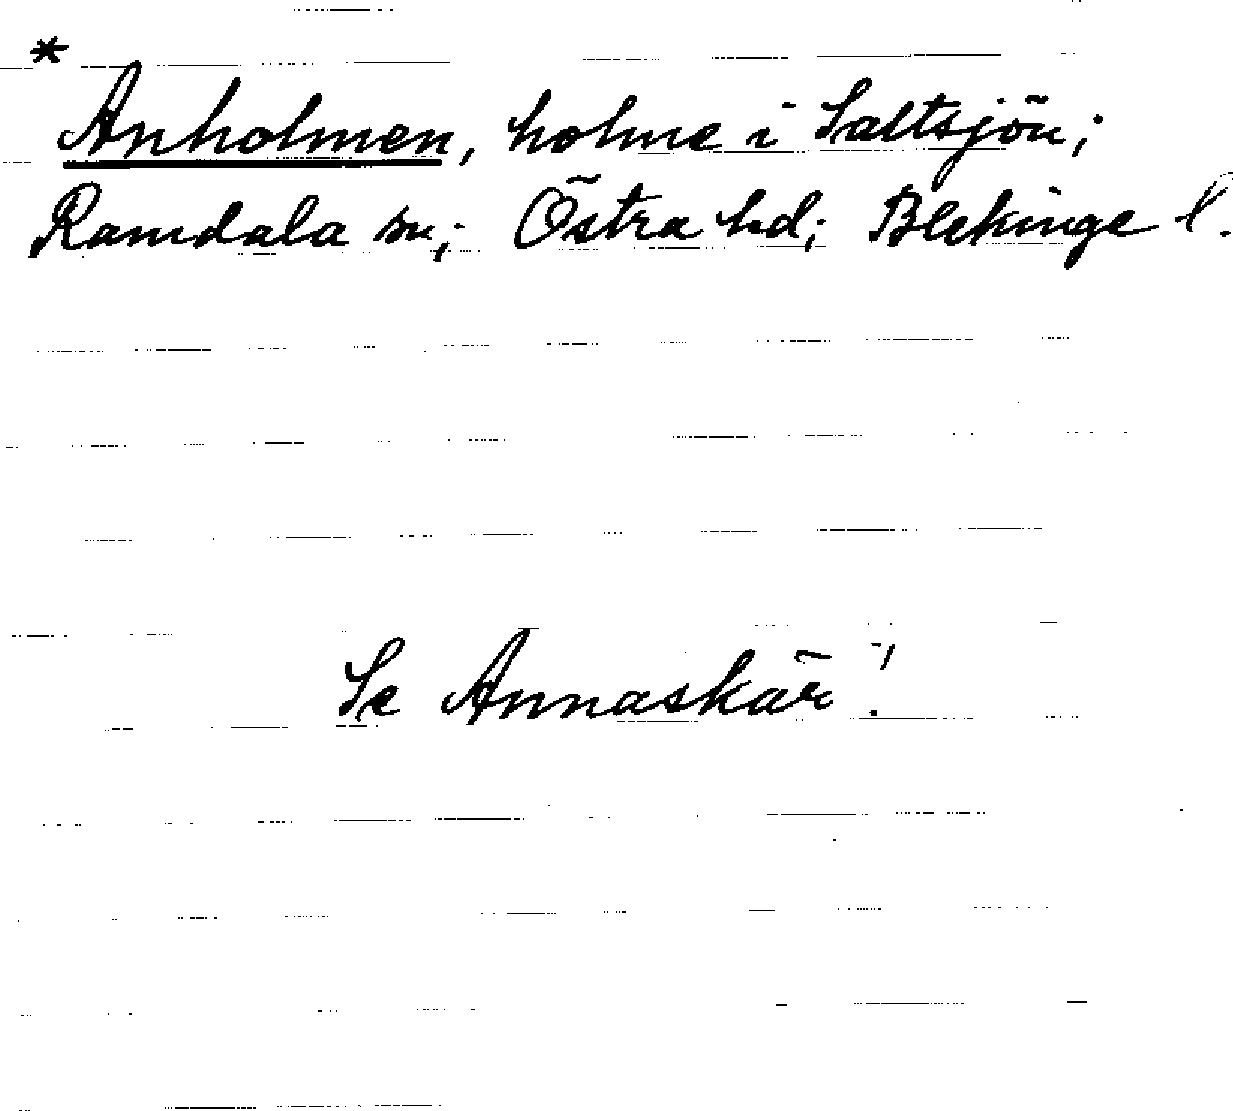 *
Anholmen, holme i Saltsjön;
Ramdala sn; Östra hd; Blekinge l.
Se Annaskär!